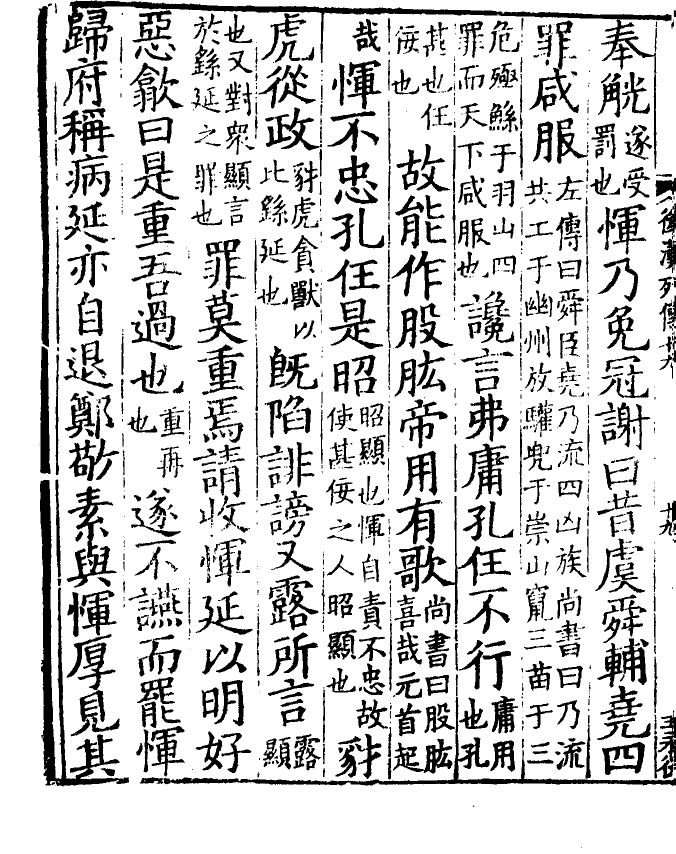 奉觥遂受罰也惲乃免冠謝曰昔虞舜輔堯四
罪咸服左傳曰舜臣堯乃流四凶族尚書曰乃流共工于幽州放驩兜于崇山竄三苗于三
危殛鯀于羽山四罪而天下咸服也讒言弗庸孔任不行庸用也孔
甚也任佞也故能作股肱帝用有歌尚書曰股肱喜哉元首起
哉惲不忠孔任是昭昭顯也惲自責不忠故使甚佞之人昭顯也豺
虎從政豺虎貪獸以比繇延也旣陷誹謗又露所言露顯
也又對衆顯言於繇延之罪也罪莫重焉請收惲延以明好
惡歙曰是重吾過也重再也遂不讌而罷惲
歸府稱病延亦自退鄭敬素與惲厚見其